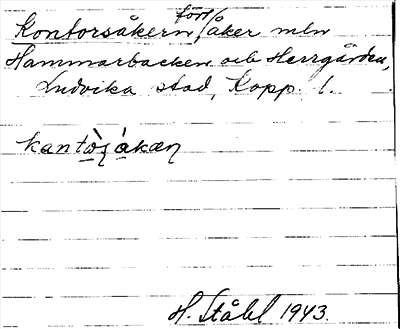 Kontorsåkern, förr åker mln
Hammarbacken och Herrgården,
Ludvika stad, Kopp. l.
H. Ståhl 1943.